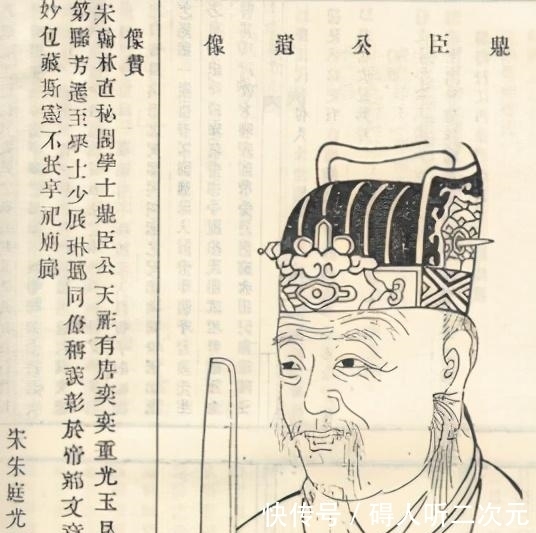 鼎臣公遺像
像贊
宋翰林直秘閣學士鼎臣公天祚有唐奕奕重光玉昆
第聯芳遷至學士少展琳瑯同僚稱彰於帝文章
妙包藏斯靈不泯享祀廟廊
宋朱庭光
快传号 / 碍人听二次元